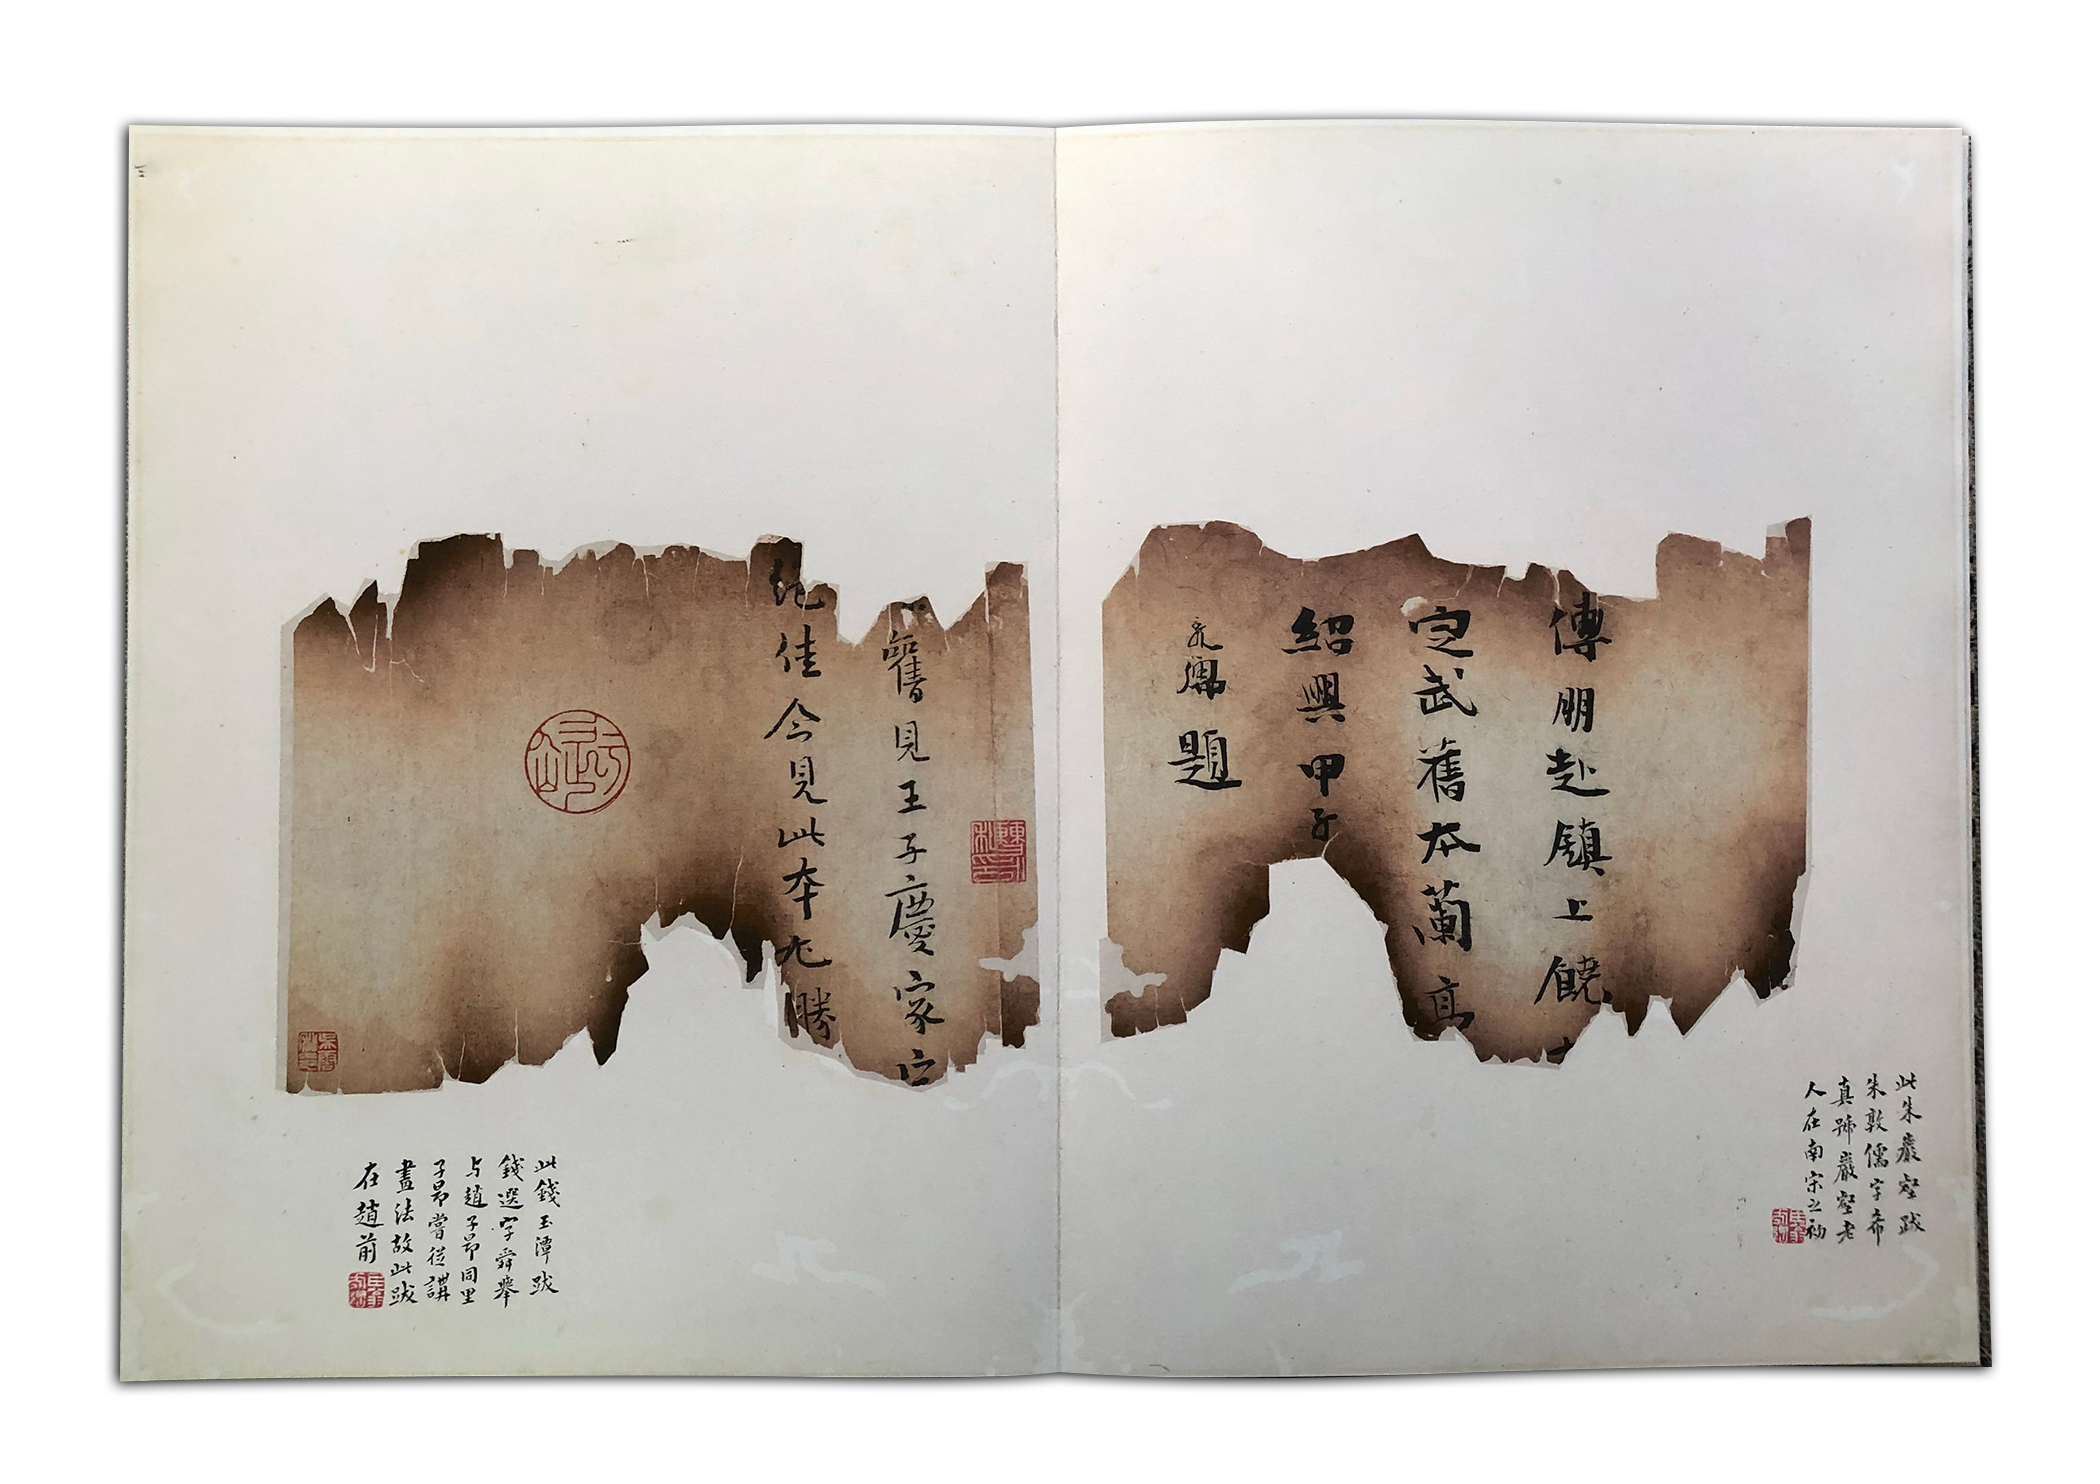 傅朋赴鎮上饒
定武舊本蘭亭
紹興甲子
敦儒題
此朱巖壑跋
朱敦儒字希
真號巖壑老
人在南宋之初
舊見王子慶家定
絕佳今見此本尤勝
此錢玉潭跋
錢選字舜舉
与趙子昂同里
子昂嘗從講
畫法故此跋
在趙前